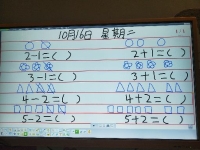 10月16日 星期二
2-1=( ) 2+1=( )
3-1=( ) 3+1=( )
4-2=( ) 4+2=( )
5-2=( ) 5+2=( )